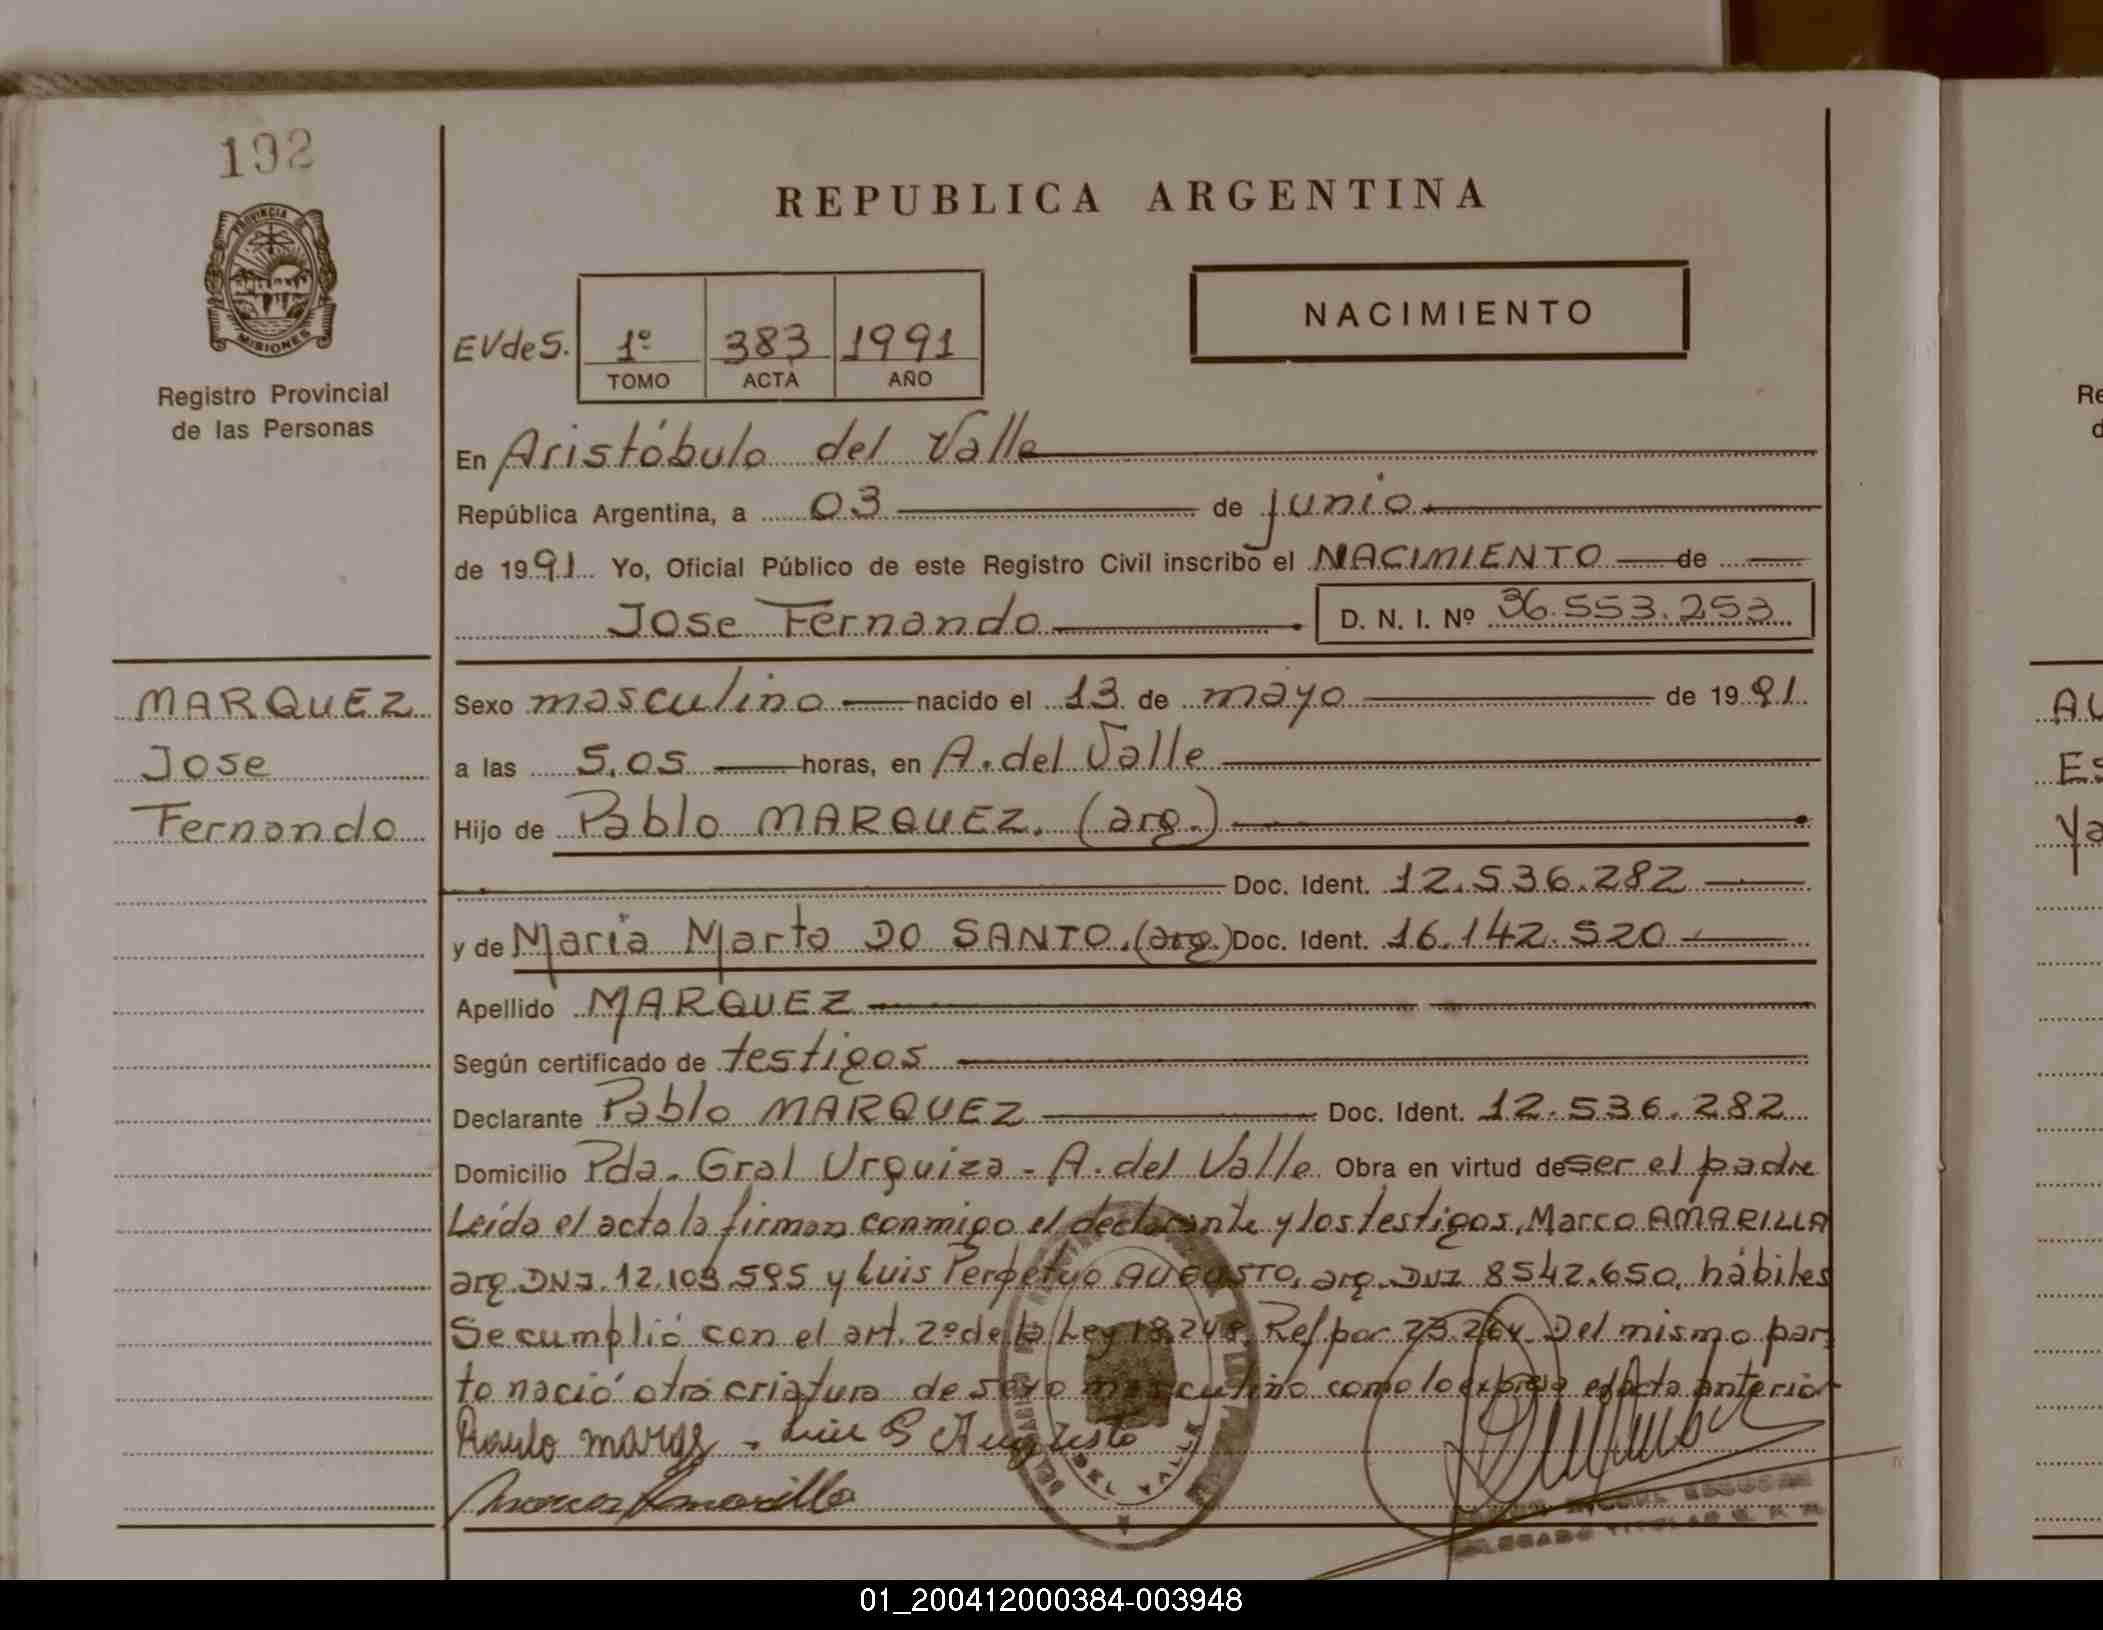 192
PROVINCIA DE
MISIONES
Registro Provincial
de las Personas
REPUBLICA ARGENTINA
NACIMIENTO
EVdeS. 1º 383 1991
TOMO ACTA AÑO
En Aristóbulo del Valle
República Argentina, a 03 de junio
de 1991 Yo, Oficial Público de este Registro Civil inscribo el NACIMIENTO de
Jose Fernando D. N. I. Nº 36.553.253
MARQUEZ
Jose
Fernando
Sexo masculino nacido el 13 de mayo de 1991.
a las 5,05 horas, en A. del Valle
Hijo de Pablo MARQUEZ. (arg.)
Doc. Ident. 12.536.282
y de Maria Marta DO SANTO. (arg.) Doc. Ident. 16.142.520
Apellido MARQUEZ
Según certificado de testigos
Declarante Pablo MARQUEZ Doc. Ident. 12.536.282
Domicilio Pda. Gral Urquiza - A. del Valle Obra en virtud de ser el padre
Leída el acta la firman conmigo el declarante y los testigos, Marco AMARILLA
arg. DNI. 12.103.595 y Luis Perpetuo AUGUSTO, arg. DNI 8542.650, hábiles
Se cumplió con el art. 2º de la Ley 18.248 Ref por 23.264. Del mismo par
to nació otra criatura de sexo masculino como lo expresa el Acta anterior
Augusto
Marcos Amarilla
DEL VALLE
DELEGADO TITULAR
Re
d
AU
Es
Ya
01_200412000384-003948